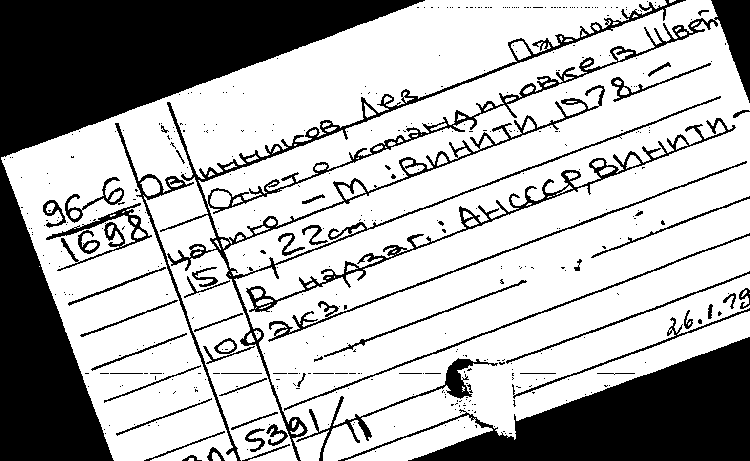 96-6
1698
Овчинников, Лев Павлович,
Отчет о командировке в Швей
царию. - М. : ВИНИТИ, 1978. -
15 с. ; 22 см.
В надзаг. : АНСССР, ВИНИТИ. -
100 экз.
26.1.79
5391/11